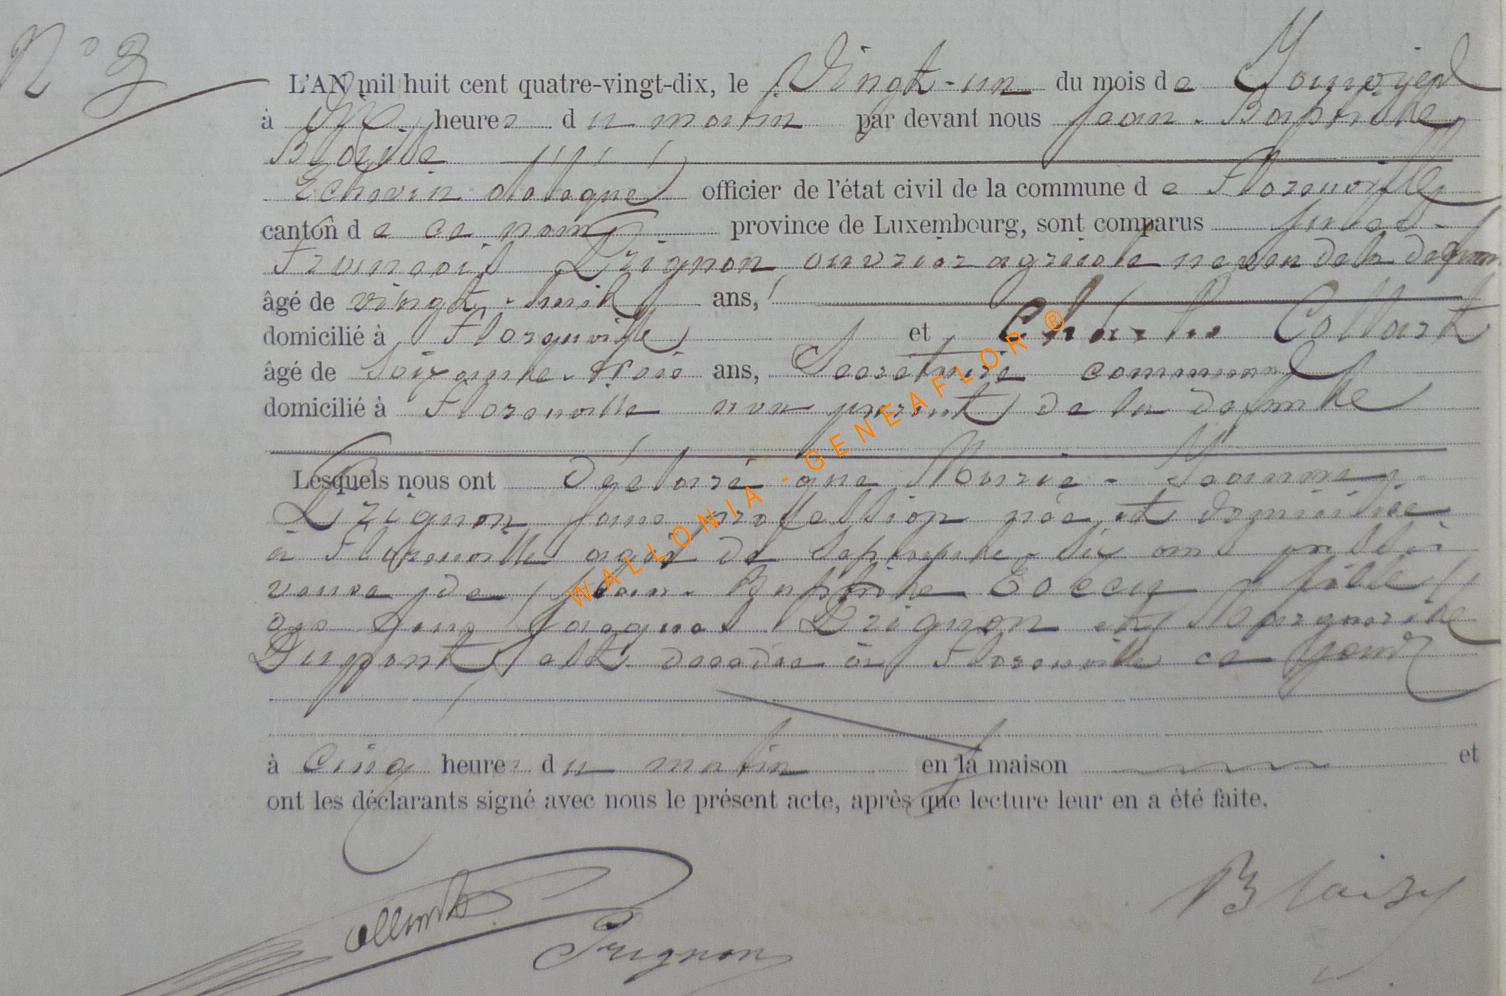 N° 3
L'AN mil huit cent quatre-vingt-dix, le Vingt-un du mois de Janvier
à dix heures du matin par devant nous Jean-Baptiste
Blaise
Echevin délégué officier de l'état civil de la commune de Florenville
canton de ce nom province de Luxembourg, sont comparus Jules-
François Prignon ouvrier agricole neveu de la défunte
âgé de vingt-huit ans,
domicilié à Florenville et Charles Collart
âgé de Soixante-trois ans, Secrétaire communal
domicilié à Florenville non parent de la défunte
Lesquels nous ont déclaré que Marie-Jeanne
Prignon, sans profession née et domiciliée
à Florenville agée de Septante-six ans
veuve de Jean-Baptiste fille
des Jacques Prignon et Marguerite
Dupont est décédée à Florenville ce jour
à cinq heures du matin en la maison et
ont les déclarants signé avec nous le présent acte, après que lecture leur en a été faite.
Collart Prignon
WALLONIA - GENEAFLOR ®